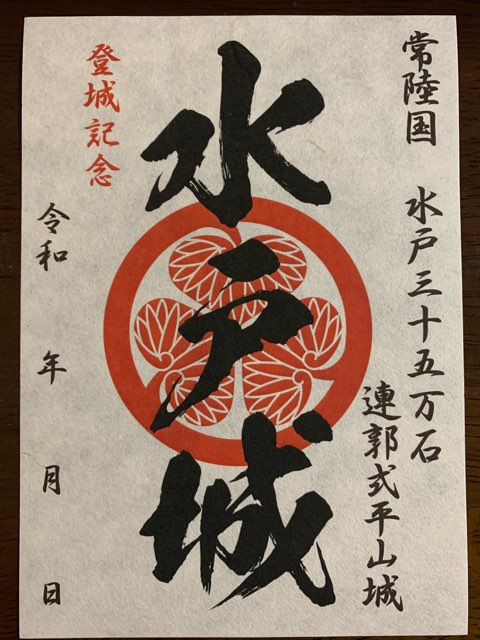 常陸国 水戸三十五万石
連郭式平山城
水戸城
登城記念
令和 年 月 日